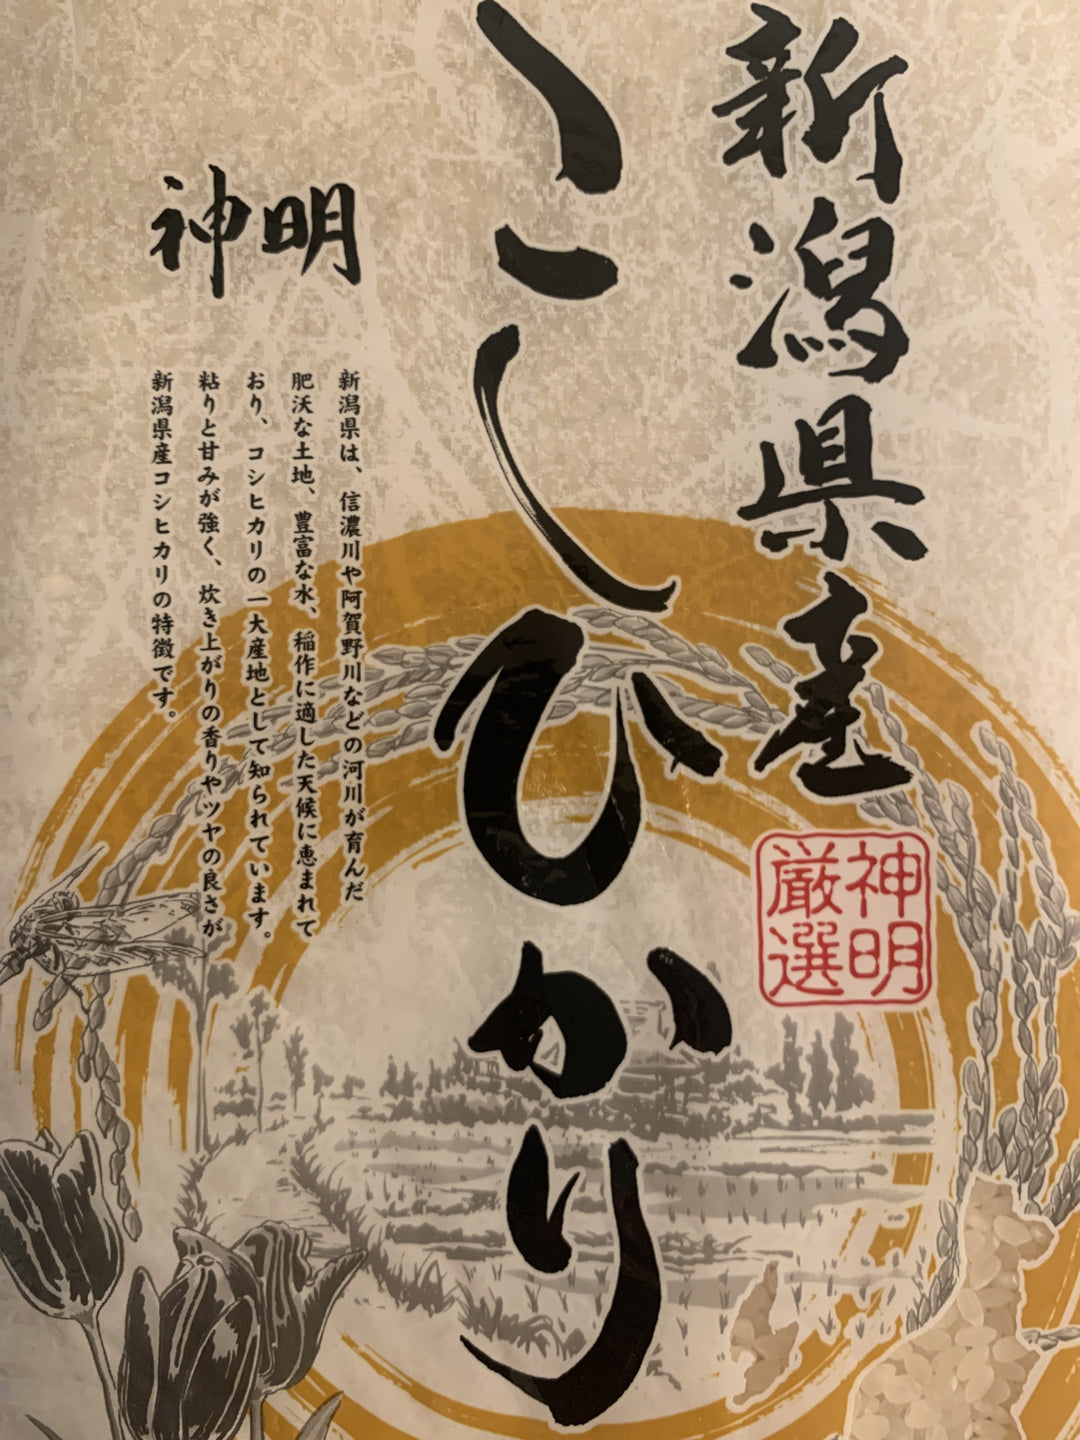 新潟県産
こしひかり
神明
厳選
神明
新潟県は、信濃川や阿賀野川などの河川が育んだ
肥沃な土地、豊富な水、稲作に適した天候に恵まれて
おり、コシヒカリの一大産地として知られています。
粘りと甘みが強く、炊き上がりの香りやツヤの良さが
新潟県産コシヒカリの特徴です。